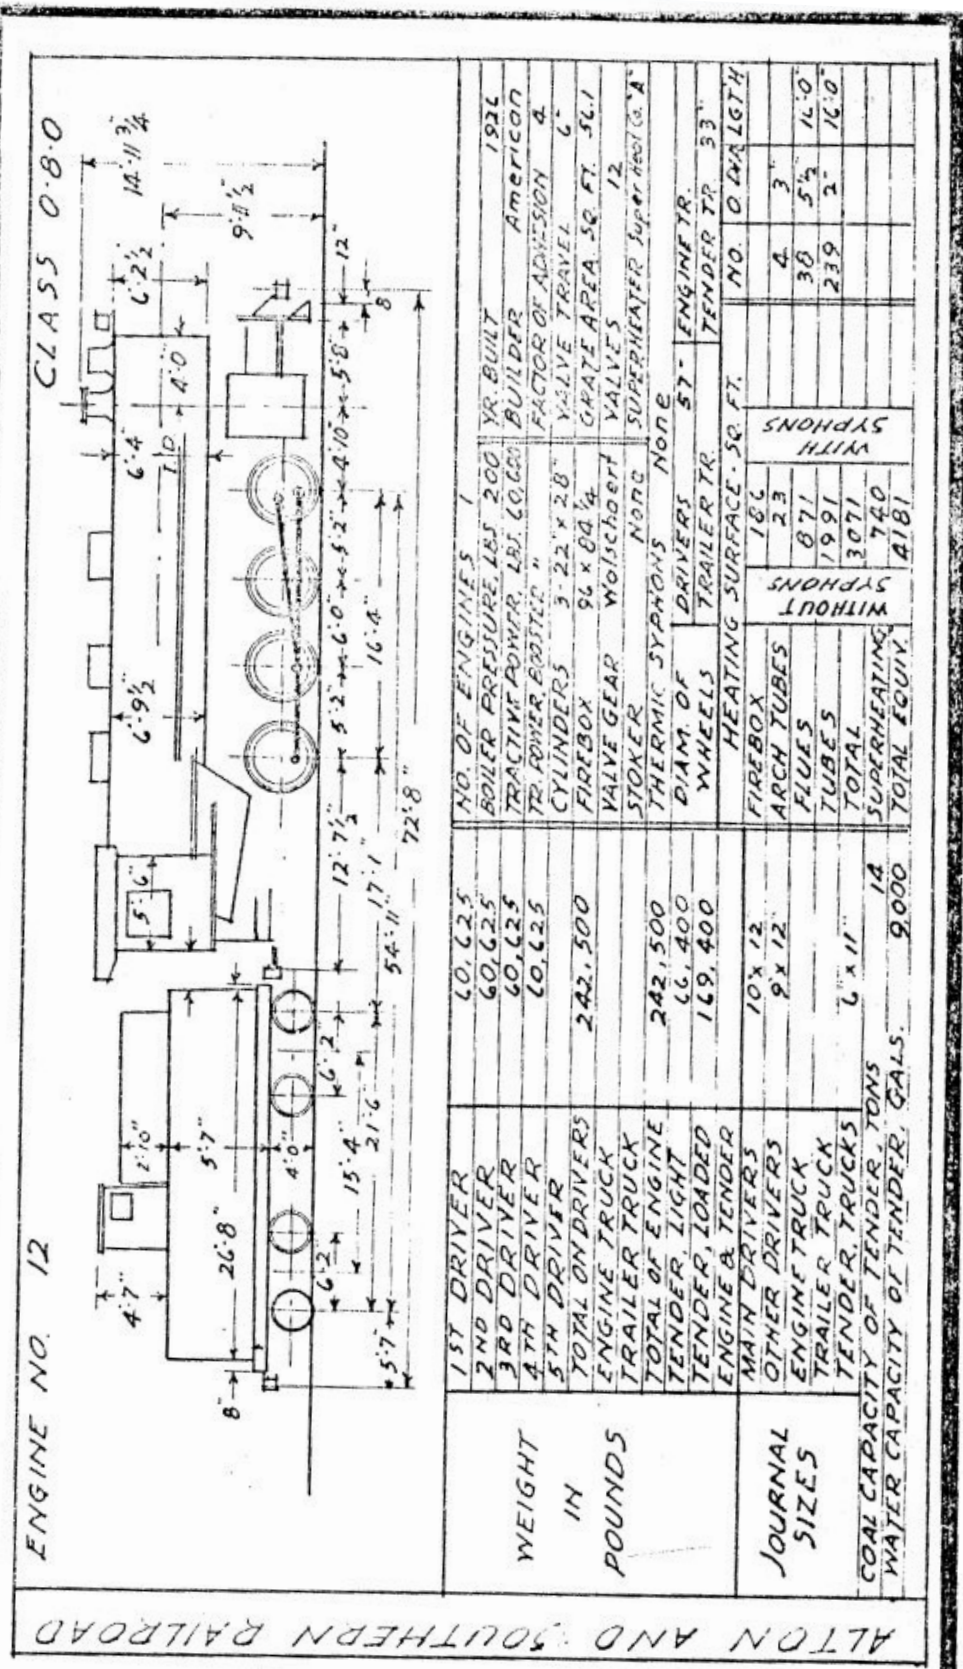 ENGINE NO. 12
CLASS 0-8-0
14'-11 3/4
9'-11 1/2"
6'-2 1/2
6'-4"
I.D.
4'-0"
6'-9 1/2"
5'-6"
4'-7"
2'-10"
5'-7"
26'-8"
4'-0"
8"
6'-2"
6'-2"
15'-4"
21'-6"
5'-7"
12'-7 1/2"
17'-1"
54'-11"
72'-8"
5'-2"
6'-0"
5'-2"
4'-10"
5'-8"
12"
8
16'-4"
WEIGHT IN POUNDS
1ST DRIVER 60,625
2ND DRIVER 60,625
3RD DRIVER 60,625
4TH DRIVER 60,625
5TH DRIVER
TOTAL ON DRIVERS 242,500
ENGINE TRUCK
TRAILER TRUCK
TOTAL OF ENGINE 242,500
TENDER, LIGHT 66,400
TENDER, LOADED 169,400
ENGINE & TENDER
JOURNAL SIZES
MAIN DRIVERS 10" x 12"
OTHER DRIVERS 9" x 12"
ENGINE TRUCK
TRAILER TRUCK
TENDER, TRUCKS 6" x 11"
COAL CAPACITY OF TENDER, TONS 14
WATER CAPACITY OF TENDER, GALS. 9,000
NO. OF ENGINES 1
BOILER PRESSURE, LBS. 200
TRACTIVE POWER, LBS. 60,600
TR. POWER, BOOSTER "
CYLINDERS 3-22" x 28"
FIREBOX 96 x 84 1/4
VALVE GEAR Walschaert
STOKER None
THERMIC SYPHONS None
DIAM. OF WHEELS
DRIVERS 57"
TRAILER TR.
ENGINE TR.
TENDER TR. 33"
YR. BUILT 1926
BUILDER American
FACTOR OF ADHESION 4
VALVE TRAVEL 6"
GRATE AREA, SQ. FT. 56.1
VALVES 12
SUPERHEATER Super Heat Co. "A"
HEATING SURFACE - SQ. FT.
NO. O. DIA. LGTH
WITHOUT SYPHONS
WITH SYPHONS
FIREBOX 186
ARCH TUBES 23 4 3"
FLUES 871 38 5 1/2" 16'-0"
TUBES 1991 239 2" 16'-0"
TOTAL 3071
SUPERHEATING 740
TOTAL EQUIV. 4181
ALTON AND SOUTHERN RAILROAD